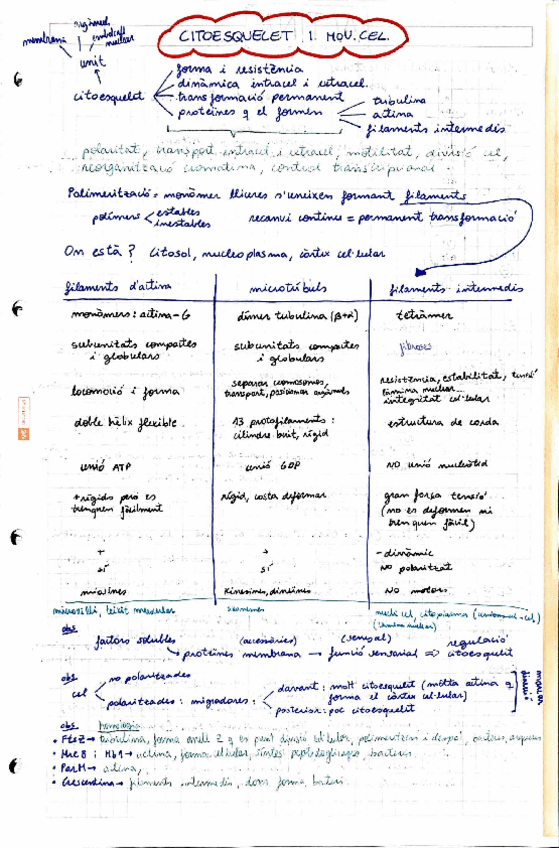 CITOESQUELET I MOV. CEL.
membrana
embolcall nuclear
unit
citoesquelet
forma i resistència
dinàmica intracel i extracel.
transformació permanent
proteïnes q el formen
tubulina
actina
filaments intermedis
polaritat, transport intracel i extracel, motilitat, divisió cel,
reorganització cromatina, control transcripcional
Polimerització: monòmer lliures s'uneixen formant filaments
polímers
estables
inestables
recanvi continu = permanent transformació
On està? Citosol, nucleoplasma, còrtex cel·lular
filaments d'actina microtúbuls filaments intermedis
monòmers: actina-G dímer tubulina (β+α) tetràmer
subunitats compactes i globulars subunitats compactes i globulars fibroses
locomoció i forma separar cromosomes, transport, posicionar orgànuls resistència, estabilitat, tensió làmina nuclear... integritat cel·lular
doble hèlix flexible 13 protofilaments: cilindre buit, rígid estructura de corda
unió ATP unió GDP NO unió nucleòtid
+ rígids però es trenquen fàcilment rígid, costa deformar gran força tensió (no es deformen ni trenquen fàcil)
+ + - dinàmic
sí sí NO polaritzat
miosines Kinesines, dineïnes NO motors
microvilli, teixit muscular
(làmina nuclear)
obs
factors solubles
(accessòries) (sensorial) regulació
proteïnes membrana → funció sensorial => citoesquelet
obs
cel
no polaritzades
polaritzades: migradores:
davant: molt citoesquelet (molta actina q forma el còrtex cel·lular)
posterior: poc citoesquelet
obs Homòlegs
• FtsZ → tubulina, forma anell Z q es punt divisió cel·lular,
• MreB i Mbl → actina, forma cel·lular, síntesi peptidoglicans, bacteris
• ParM → actina,
• Crescentina → filaments intermedis, dona forma, bacteri.